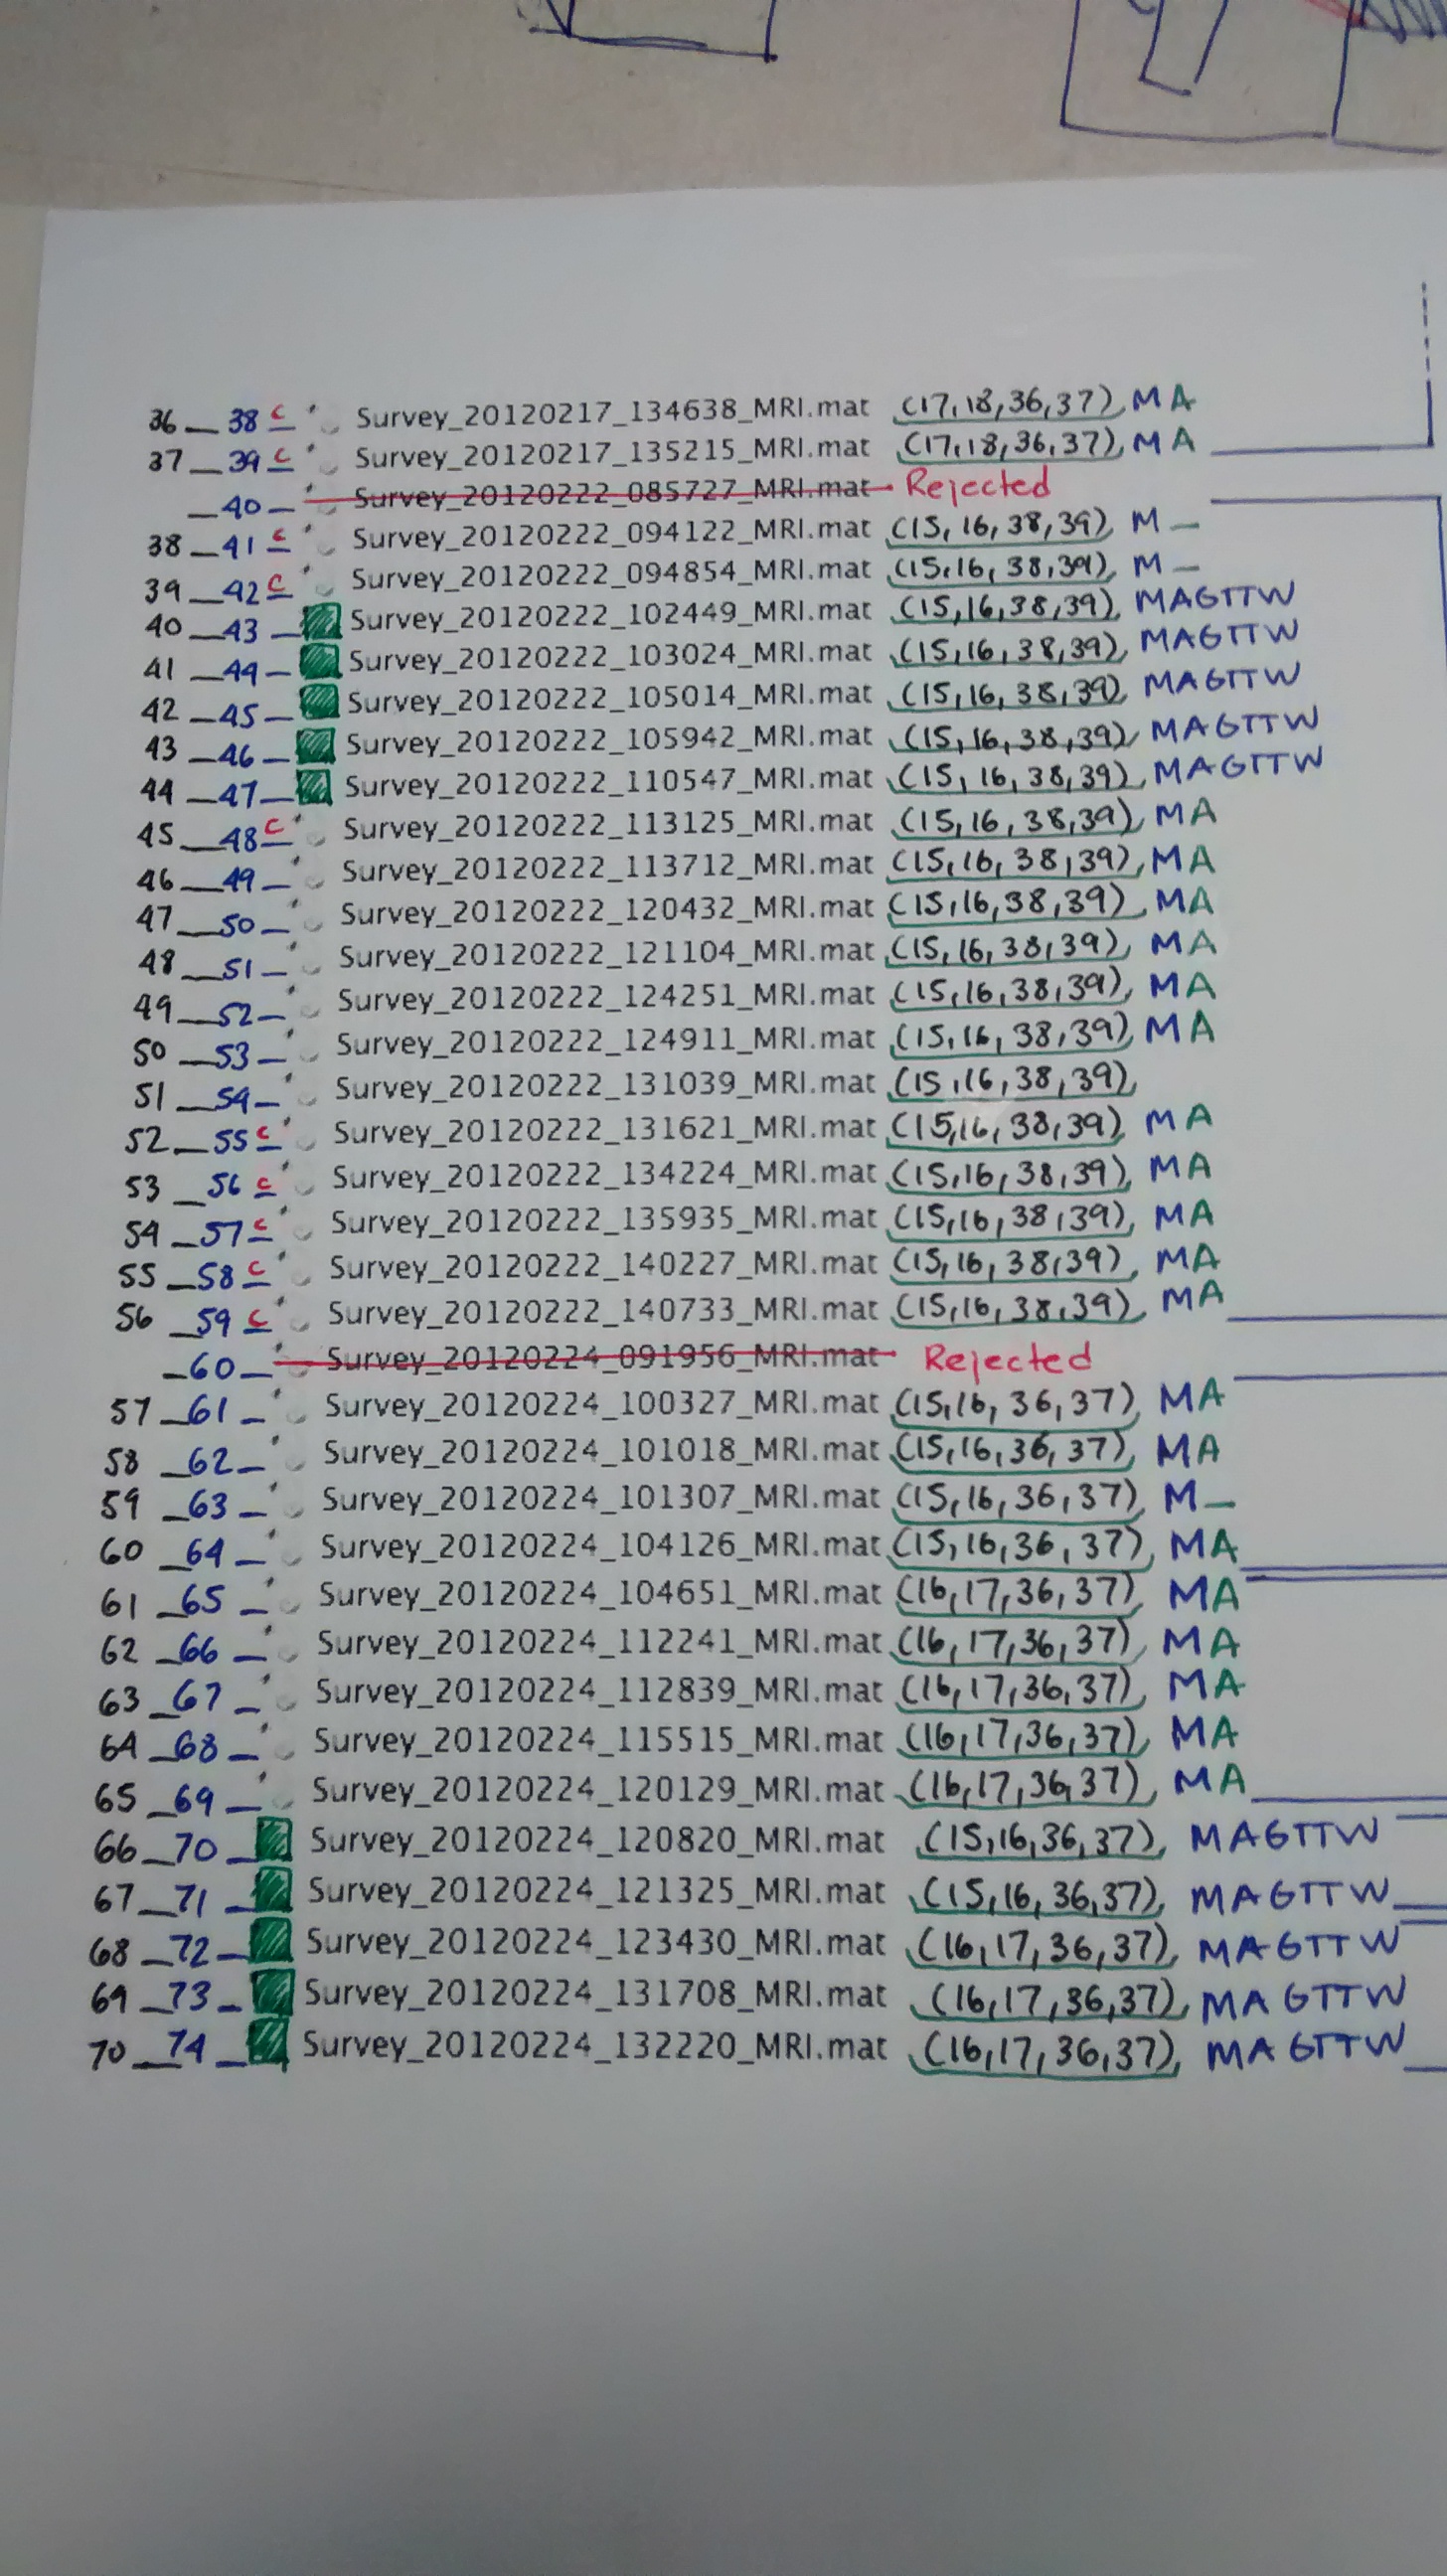 36 _ 38 c ' Survey_20120217_134638_MRI.mat (17,18,36,37), MA
37 _ 39 c ' Survey_20120217_135215_MRI.mat (17,18,36,37), MA
_40_ ' Survey_20120222_085727_MRI.mat Rejected
38 _ 41 c ' Survey_20120222_094122_MRI.mat (15,16,38,39), M _
39 _ 42 c ' Survey_20120222_094854_MRI.mat (15,16,38,39), M _
40 _ 43 _ Survey_20120222_102449_MRI.mat (15,16,38,39), MAGTTW
41 _ 44 _ Survey_20120222_103024_MRI.mat (15,16,38,39), MAGTTW
42 _ 45 _ Survey_20120222_105014_MRI.mat (15,16,38,39), MAGTTW
43 _ 46 _ Survey_20120222_105942_MRI.mat (15,16,38,39), MAGTTW
44 _ 47 _ Survey_20120222_110547_MRI.mat (15,16,38,39), MAGTTW
45 _ 48 c ' Survey_20120222_113125_MRI.mat (15,16,38,39), MA
46 _ 49 _ ' Survey_20120222_113712_MRI.mat (15,16,38,39), MA
47 _ 50 _ ' Survey_20120222_120432_MRI.mat (15,16,38,39), MA
48 _ 51 _ ' Survey_20120222_121104_MRI.mat (15,16,38,39), MA
49 _ 52 _ ' Survey_20120222_124251_MRI.mat (15,16,38,39), MA
50 _ 53 _ ' Survey_20120222_124911_MRI.mat (15,16,38,39), MA
51 _ 54 _ ' Survey_20120222_131039_MRI.mat (15,16,38,39),
52 _ 55 c ' Survey_20120222_131621_MRI.mat (15,16,38,39), MA
53 _ 56 c ' Survey_20120222_134224_MRI.mat (15,16,38,39), MA
54 _ 57 c ' Survey_20120222_135935_MRI.mat (15,16,38,39), MA
55 _ 58 c ' Survey_20120222_140227_MRI.mat (15,16,38,39), MA
56 _ 59 c ' Survey_20120222_140733_MRI.mat (15,16,38,39), MA
_60_ ' Survey_20120224_091956_MRI.mat Rejected
57 _ 61 _ ' Survey_20120224_100327_MRI.mat (15,16,36,37), MA
58 _ 62 _ ' Survey_20120224_101018_MRI.mat (15,16,36,37), MA
59 _ 63 _ ' Survey_20120224_101307_MRI.mat (15,16,36,37), M _
60 _ 64 _ ' Survey_20120224_104126_MRI.mat (15,16,36,37), MA
61 _ 65 _ ' Survey_20120224_104651_MRI.mat (16,17,36,37), MA
62 _ 66 _ ' Survey_20120224_112241_MRI.mat (16,17,36,37), MA
63 _ 67 _ ' Survey_20120224_112839_MRI.mat (16,17,36,37), MA
64 _ 68 _ ' Survey_20120224_115515_MRI.mat (16,17,36,37), MA
65 _ 69 _ ' Survey_20120224_120129_MRI.mat (16,17,36,37), MA
66 _ 70 _ Survey_20120224_120820_MRI.mat (15,16,36,37), MAGTTW
67 _ 71 _ Survey_20120224_121325_MRI.mat (15,16,36,37), MAGTTW
68 _ 72 _ Survey_20120224_123430_MRI.mat (16,17,36,37), MAGTTW
69 _ 73 _ Survey_20120224_131708_MRI.mat (16,17,36,37), MAGTTW
70 _ 74 _ Survey_20120224_132220_MRI.mat (16,17,36,37), MAGTTW